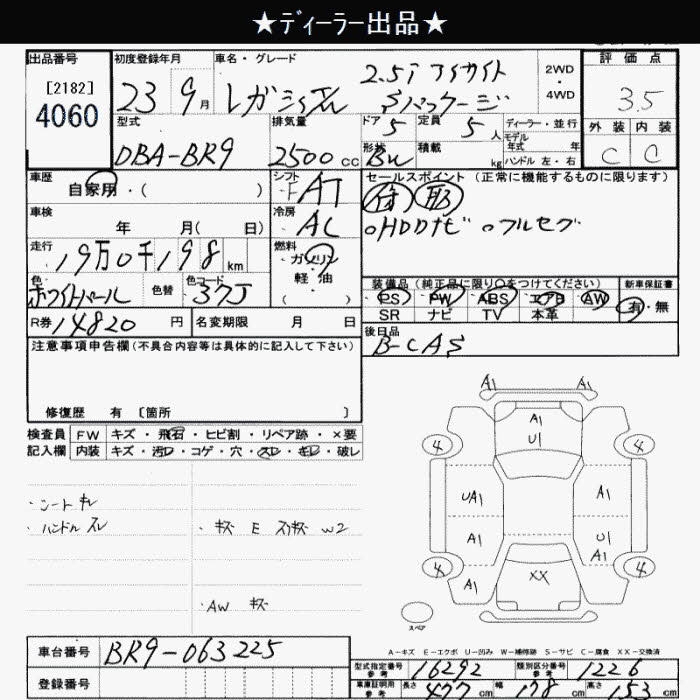 ★ディーラー出品★
出品番号
[2182]
4060
初度登録年月
23 9月
車名・グレード
レガシィ
2.5i アイサイト
Sパッケージ
2WD
・
4WD
評価点
3.5
外装 内装
C C
型式
DBA-BR9
排気量
2500cc
ドア 5
形状
定員 5人
積載 kg
ディーラー・並行
モデル年式 年
ハンドル 左・右
車歴
自家用・( )
シフト
F AT
セールスポイント (正常に機能するものに限ります)
。HDDナビ 。フルセグ
車検
年 月( 日)
冷房
AC
走行
19万0千198km
燃料
ガソリン
・
軽油
・
( )
色
ホワイトパール
色替
色コード
37J
装備品 (純正品に限り○をつけてください)
PS PW ABS エアB AW
SR ナビ TV 本革
新車保証書
有・無
R券 14820円
名変期限 月 日
後日品
B-CAS
注意事項申告欄(不具合内容等は具体的に記入して下さい)
修復歴 有 〔箇所 〕
検査員
記入欄
FW キズ・飛石・ヒビ割・リペア跡・×要
内装 キズ・汚レ・コゲ・穴・スレ・キレ・破レ
・シート キレ
・ハンドル スレ
・キズ E スリキズ W2
・AW キズ
A1 A1
A1
U1
4 4
UA1 A1
A1 U1
A1
4 4
A1
XX
スペア
A-キズ E-エクボ U-凹み W-補修跡 S-サビ C-腐食 XX-交換済
車台番号
BR9-063225
登録番号
型式指定番号
参考
16292
類別区分番号
参考
1226
車庫証明用
参考
長さ 477cm 幅 178cm 高さ 153cm